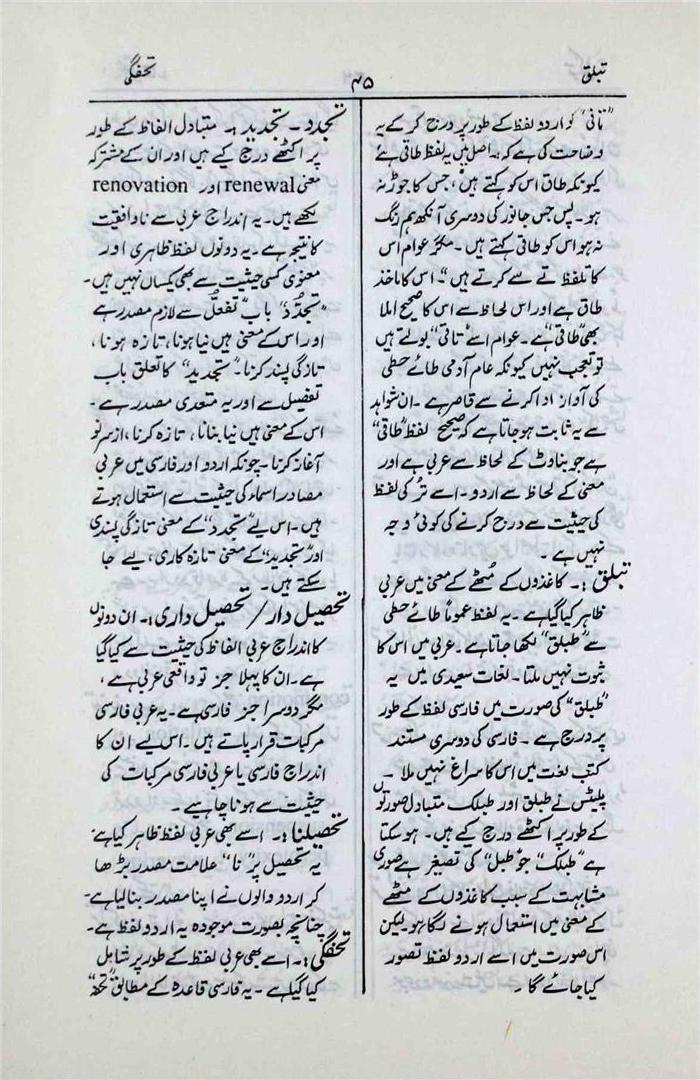 تبلق
۴۵
تحفگی
"تاتی" کو اردو لفظ کے طور پر درج کر کے یہ
وضاحت کی ہے کہ: اصل میں یہ لفظ طاقی ہے
کیونکہ طاق اس کو کہتے ہیں، جس کا جوڑ نہ
ہو۔ پس جس جانور کی دوسری آنکھ ہم رنگ
نہ ہو اس کو طاقی کہتے ہیں۔ مگر عوام اس
کا تلفظ تے سے کرتے ہیں"۔ اس کا ماخذ
طاق ہے اور اس لحاظ سے اس کا صحیح املا
بھی "طاقی" ہے۔ عوام اسے "تاتی" بولتے ہیں
تو تعجب نہیں کیونکہ عام آدمی طائے حطی
کی آواز ادا کرنے سے قاصر ہے۔ ان شواہد
سے یہ ثابت ہو جاتا ہے کہ صحیح لفظ "طاقی"
ہے جو بناوٹ کے لحاظ سے عربی ہے اور
معنی کے لحاظ سے اردو۔ اسے ترکی لفظ
کی حیثیت سے درج کرنے کی کوئی وجہ
نہیں ہے۔
تبلق:۔ کاغذوں کے مُٹھے کے معنی میں عربی
ظاہر کیا گیا ہے۔ یہ لفظ عموماً طائے حطی
سے "طبلق" لکھا جاتا ہے۔ عربی میں اس کا
ثبوت نہیں ملتا۔ لغات سعیدی میں یہ
"طبلق" کی صورت میں فارسی لفظ کے طور
پر درج ہے۔ فارسی کی دوسری مستند
کتب لغت میں اس کا سراغ نہیں ملا۔
پلیٹس نے طبلق اور طبلک متبادل صورتوں
کے طور پر اکٹھے درج کیے ہیں۔ ہو سکتا
ہے "طبلک" جو "طبل" کی تصغیر ہے صوری
مشابہت کے سبب کاغذوں کے مٹھے
کے معنی میں استعمال ہونے لگا ہو لیکن
اس صورت میں اسے اردو لفظ تصور
کیا جائے گا۔
تجدد۔ تجدید:۔ متبادل الفاظ کے طور
پر اکٹھے درج کیے ہیں اور ان کے مشترکہ
معنی renewal اور renovation
لکھے ہیں۔ یہ اندراج عربی سے ناواقفیت
کا نتیجہ ہے۔ یہ دونوں لفظ ظاہری اور
معنوی کسی حیثیت سے بھی یکساں نہیں ہیں۔
"تجدُّد" باب "تفعل" سے لازم مصدر ہے
اور اس کے معنی ہیں نیا ہونا، تازہ ہونا،
تازگی پسند کرنا۔ "تجدید" کا تعلق باب
تفعیل سے اور یہ متعدی مصدر ہے۔
اس کے معنی ہیں نیا بنانا، تازہ کرنا، ازسرنو
آغاز کرنا۔ چونکہ اردو اور فارسی میں عربی
مصادر اسماء کی حیثیت سے استعمال ہوتے
ہیں۔ اس لیے "تجدد" کے معنی تازگی پسندی
اور "تجدید" کے معنی تازہ کاری، لیے جا
سکتے ہیں۔
تحصیل دار/تحصیل داری:۔ ان دونوں
کا اندراج عربی الفاظ کی حیثیت سے کیا گیا
ہے۔ ان کا پہلا جز تو واقعی عربی ہے،
مگر دوسرا جز فارسی ہے۔ یہ عربی فارسی
مرکبات قرار پاتے ہیں۔ اس لیے ان کا
اندراج فارسی یا عربی فارسی مرکبات کی
حیثیت سے ہونا چاہیے۔
تحصیلنا:۔ اسے بھی عربی لفظ ظاہر کیا ہے
یہ تحصیل پر "نا" علامت مصدر بڑھا
کر اردو والوں نے اپنا مصدر بنا لیا ہے۔
چنانچہ بصورت موجودہ یہ اردو لفظ ہے۔
تحفگی:۔ اسے بھی عربی لفظ کے طور پر شامل
کیا گیا ہے۔ یہ فارسی قاعدہ کے مطابق "تحفہ"